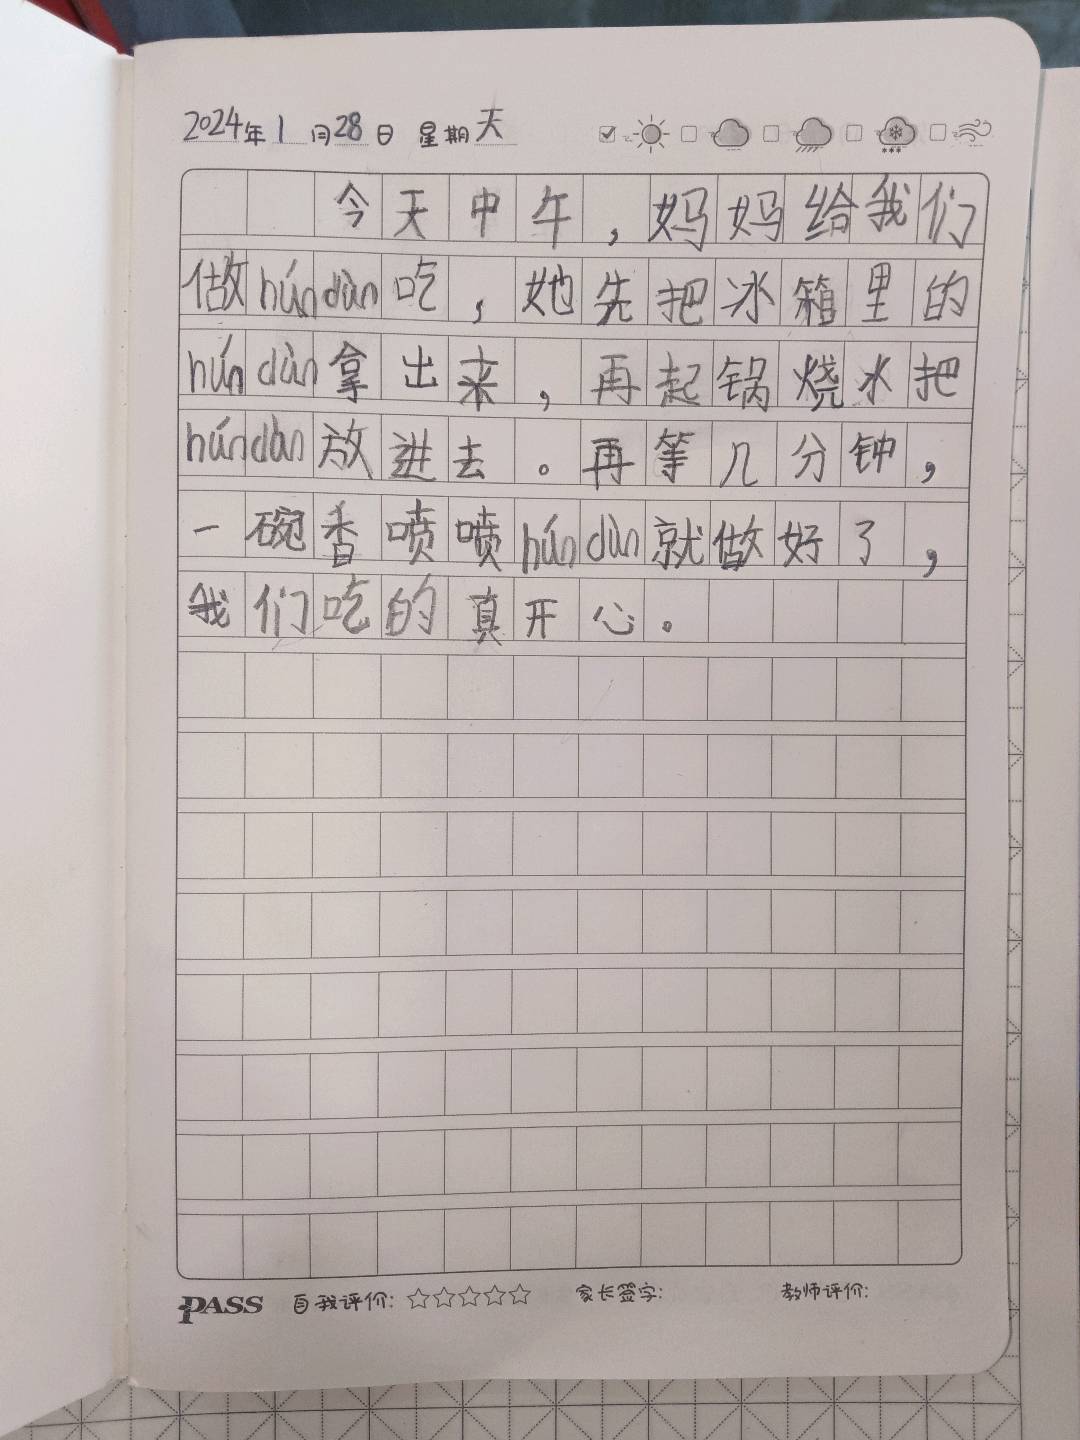 2024年1月28日 星期天
今天中午，妈妈给我们
做hún dùn吃，她先把冰箱里的
hún dùn拿出来，再起锅烧水把
hún dùn放进去。再等几分钟，
一碗香喷喷hún dùn就做好了，
我们吃的真开心。
PASS 自我评价：☆☆☆☆☆ 家长签字： 教师评价：